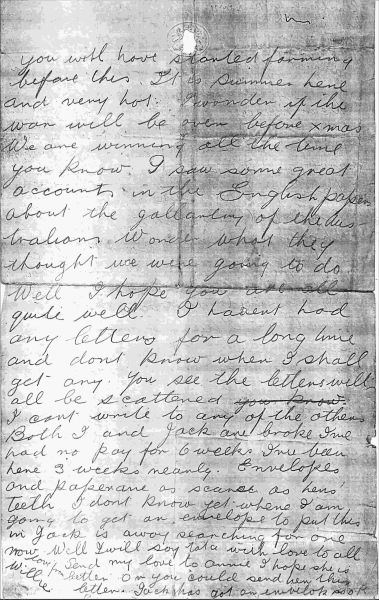 you will have started farming
before this. It is summer here
and very hot. I wonder if the
war will be over before xmas
We are winning all the time
you know. I saw some great
accounts in the English papers
about the gallantry of the Aus
tralians Wonder what they
thought we were going to do
Well I hope you are all
quite well I havent had
any letters for a long time
and dont know when I shall
get any. You see the letters will
all be scattered you know.
I cant write to any of the others
Both I and Jack are broke Ive
had no pay for 6 weeks Ive been
here 3 weeks nearly. Envelopes
and paper are as scarce as hens'
teeth I dont know yet where I am
going to get an envelope to put this
in Jack is away searching for one
now Well I will say tata with love to all
Send my love to Annie I hope she is
better Or you could send her this
letter. Jack has got an envelope so ok
Willie